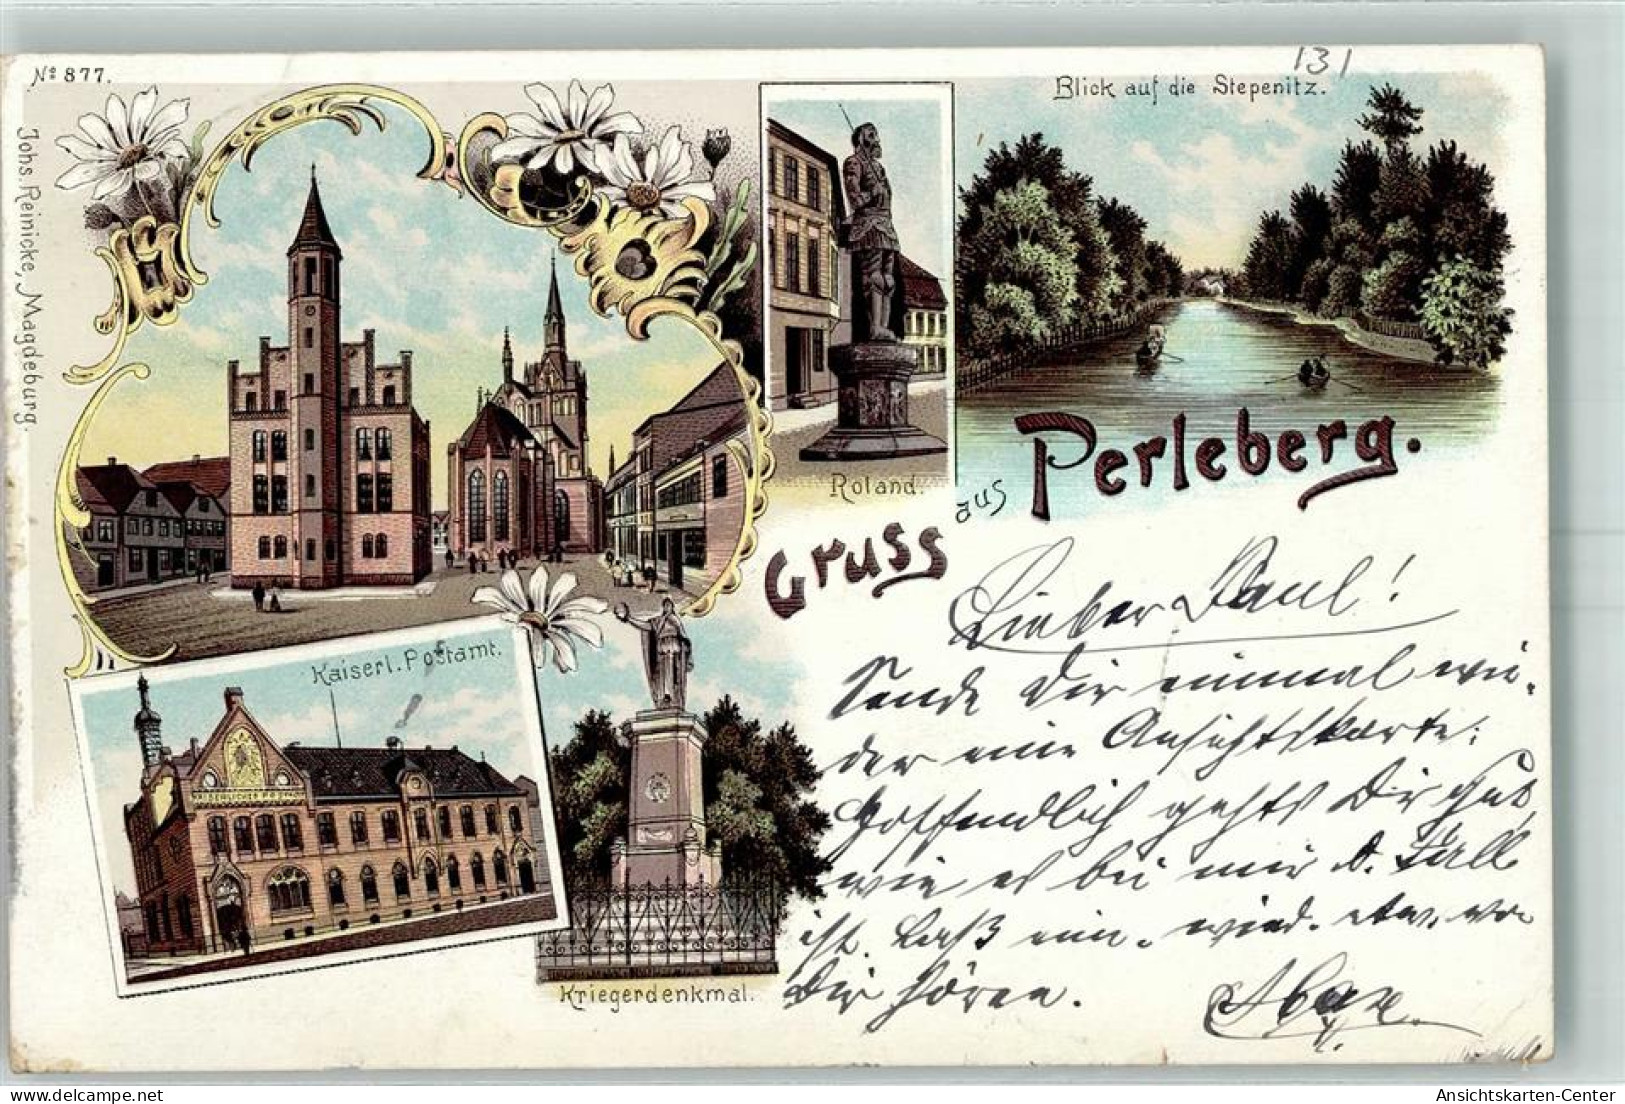 No 877.
131
Blick auf die Stepenitz.
Johs. Reinicke, Magdeburg.
Roland.
Gruss aus Perleberg.
Kaiserl. Postamt.
Kriegerdenkmal.
Lieber Paul!
Sende Dir einmal wie-
der eine Ansichtskarte.
Hoffendlich gehts Dir gut,
wie es bei mir d. Fall
ist. Laß einm. wied. etw. von
Dir hören.
Ansichtskarten-Center